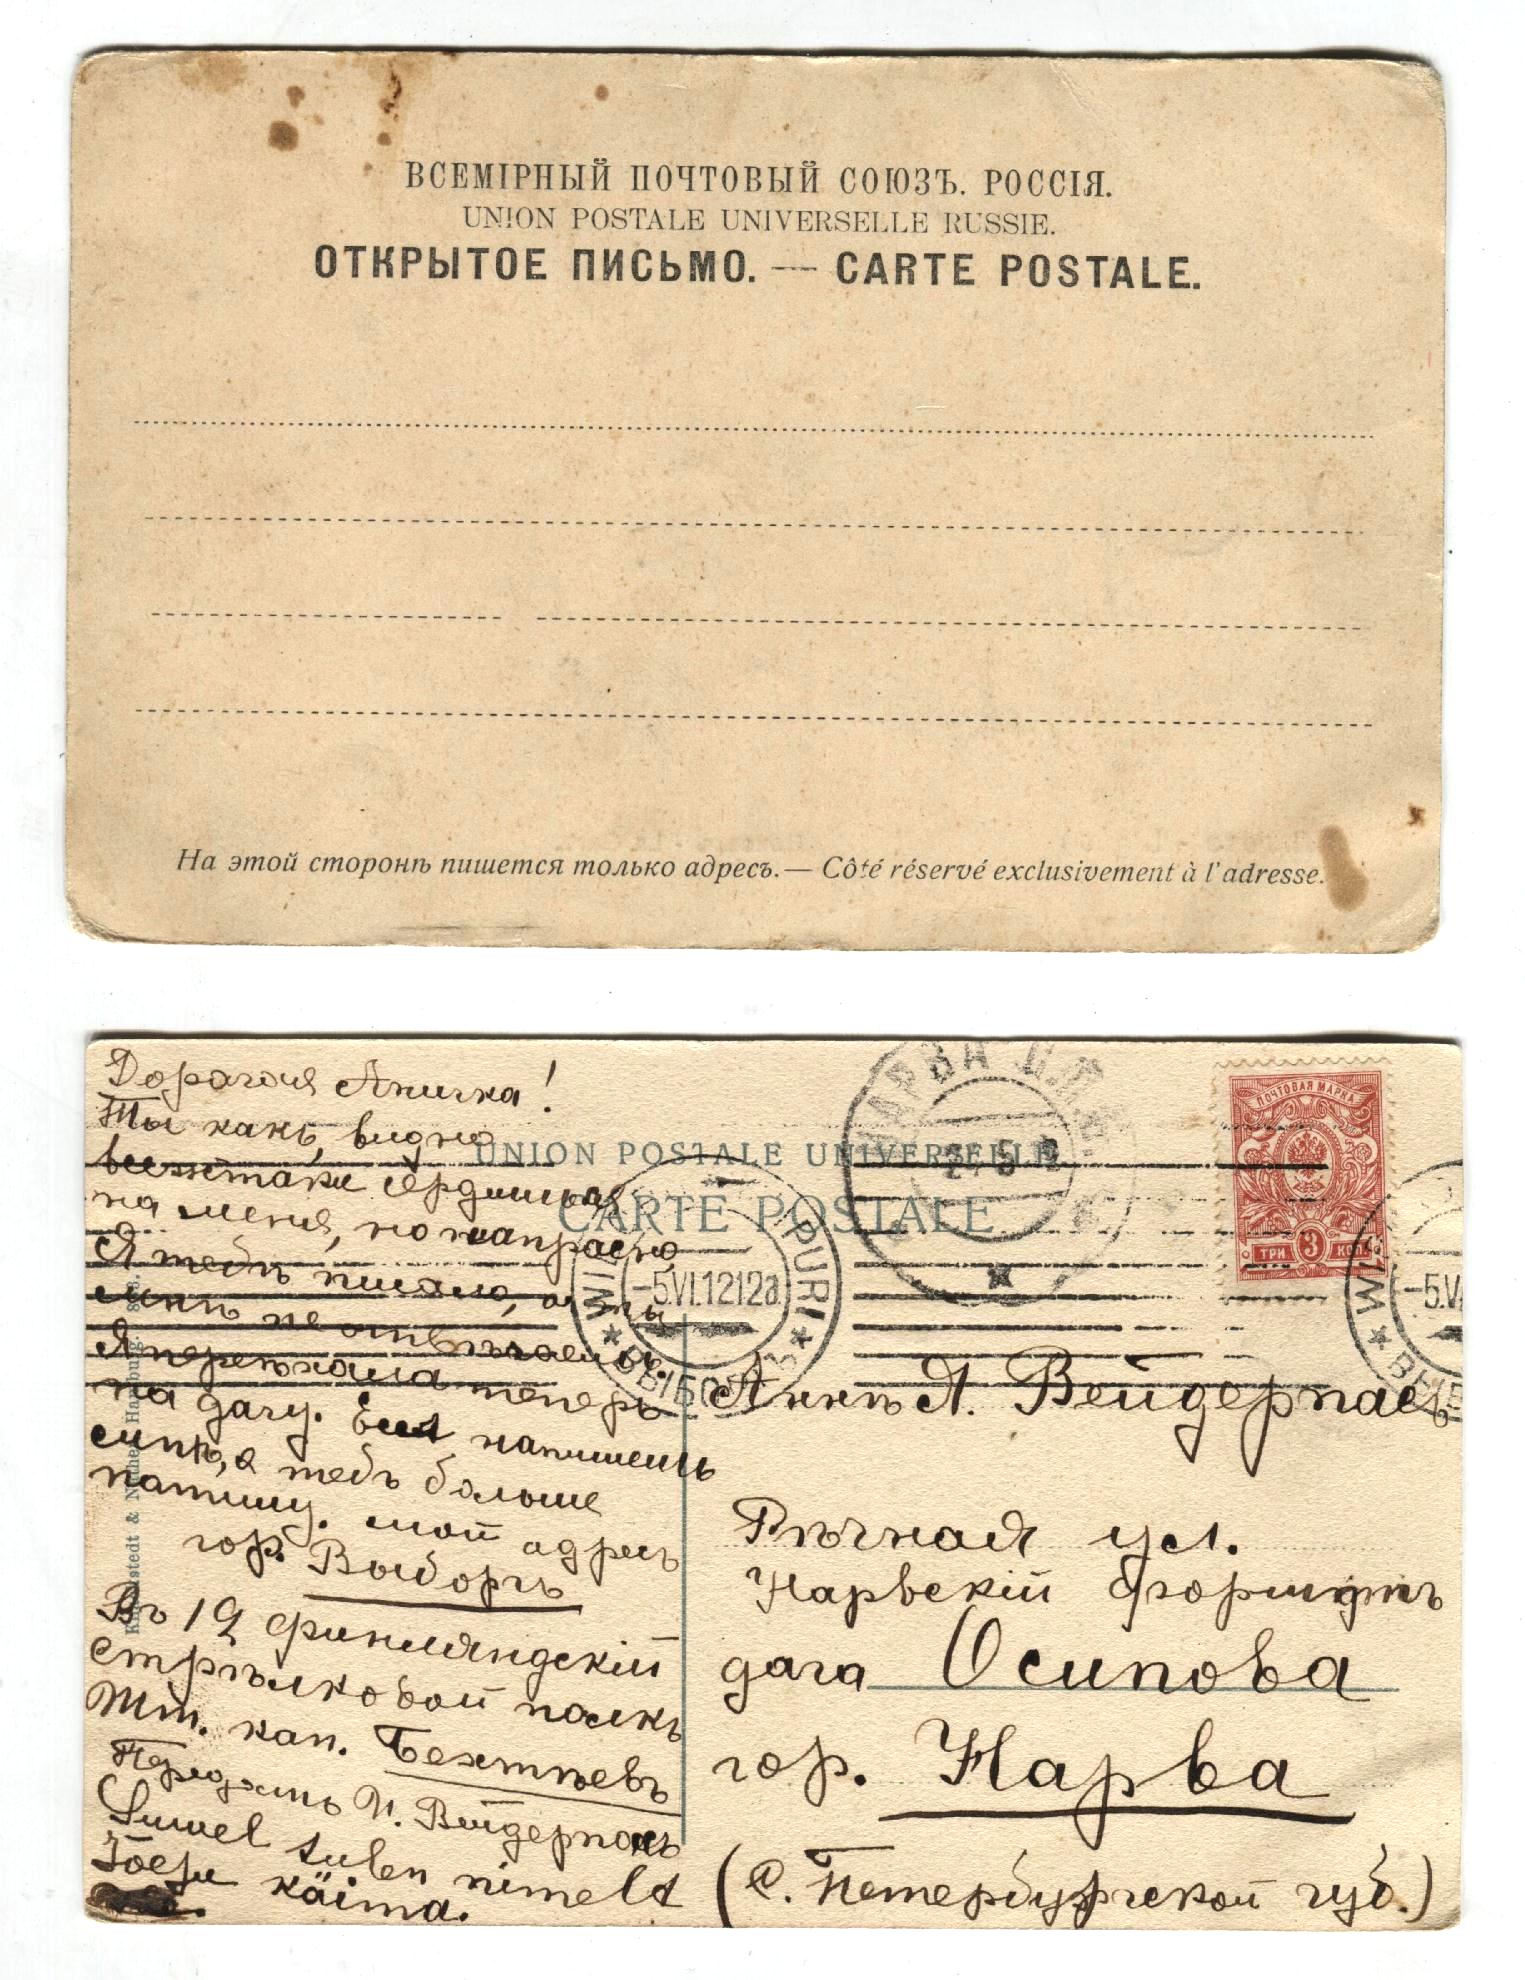 ВСЕМІРНЫЙ ПОЧТОВЫЙ СОЮЗЪ. РОССІЯ.
UNION POSTALE UNIVERSELLE RUSSIE.
ОТКРЫТОЕ ПИСЬМО. — CARTE POSTALE.
На этой сторонѣ пишется только адресъ. — Côté réservé exclusivement à l'adresse.
Дорогая Аничка!
Ты какъ видно
всетаки сердишься
на меня, но напрасно
Я тебѣ писала, а ты
мнѣ не отвѣчаешь.
Я переѣхала теперь
на дачу. Если напишешь
мнѣ, я тебѣ больше
напишу. мой адресъ
гор. Выборгъ
Въ 12 финляндскій
стрѣлковой полкъ
Шт. кап. Бехтѣевъ
Передать И. Вейдерпасъ
Suwel tulen nimelt
käima.
UNION POSTALE UNIVERSELLE
CARTE POSTALE
НАРВА
WIIPURI
-5.VI.12 12a
ВЫБОРГЪ
ПОЧТОВАЯ МАРКА
ТРИ 3 КОП
-5.V
Аннѣ Я. Вейдерпасъ
Рѣчная ул.
Нарвскій форштатъ
дача Осипова
гор. Нарва
(С. Петербургской губ.)